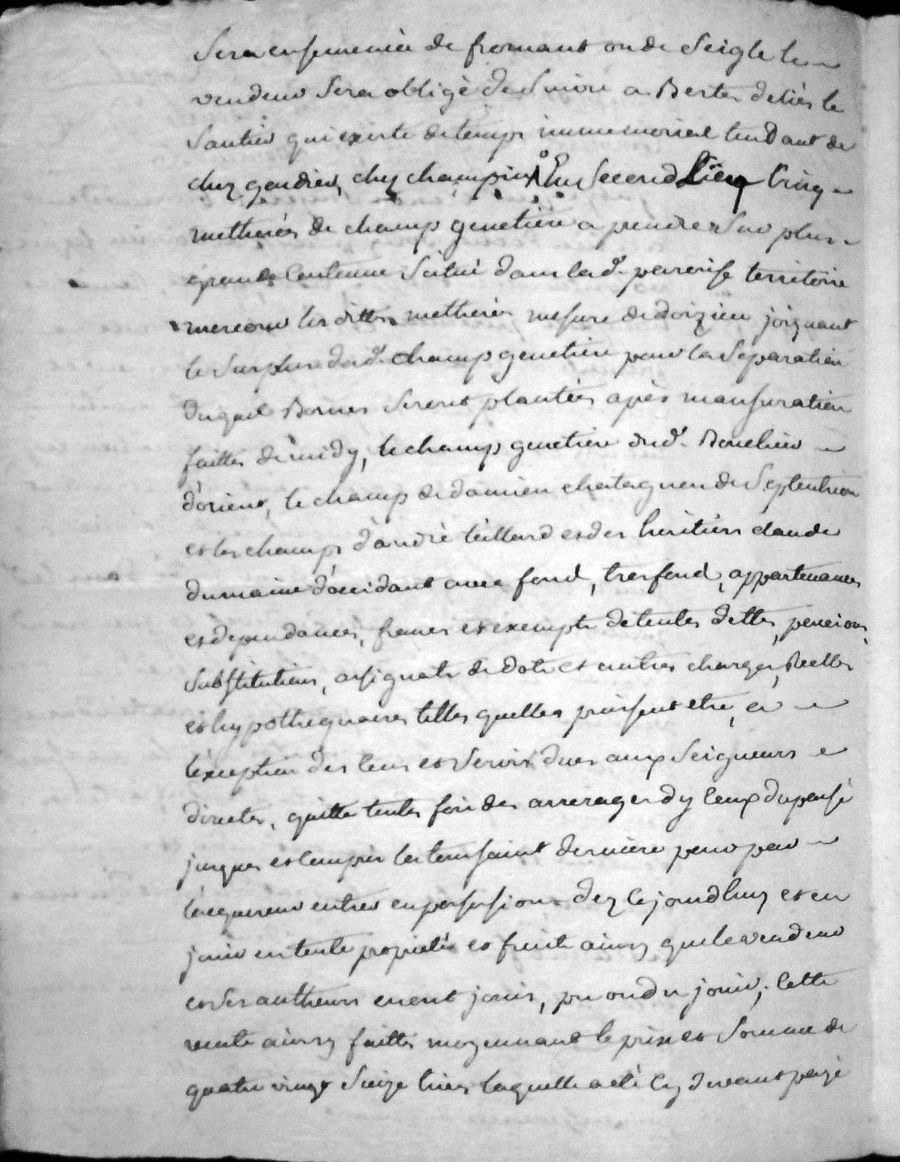 Sera ensemencée de fromant ou de Seigle le
vendeur Sera obligé de Suivre a Bestes deliés le
Santier qui existe de temps immemorial tendant de
chez gaudieu, chez champin, En Second Lieu Cinq
metherées de champ genetiere a prendre Sur plus
grande Contenue Scitué dans lad.e parroise territoire
les dittes metherées mesure de doizieu joignant
le Surplus dud.t champ genetiere pour la Separation
duquel Bornes Seront plantées après mansuration
faitte de midy, le champ genetiere dud.t
d'orient, le champ de damien chatagnon de Septentrion
et les champs d'andré teillard et des heritiers claude
dumaine d'occidant avec fond, tresfond, appartenances
et dependances, francs et exempts de toutes dettes, pencions,
Substitutions, assignats de dots et autres charges Réelles
et hypothequaires telles quelles puissent etre, à
l'exception des Cens et Servis dues aux Seigneurs
directes, quitte toutes fois des arrerages d'y Ceux du passé
jusques et Compris la toussaint derniere pour par
l'acquereur entrer en possession dez le jourdhuy et en
jouir en toute proprieté et fruits ainsy que le vendeur
et Ses autheurs en ont jouis, pu ou du jouir, Cette
vente ainsy faitte moyennant le prix et Somme de
quatre vingt Seize livres laquelle a été Cy devant payé